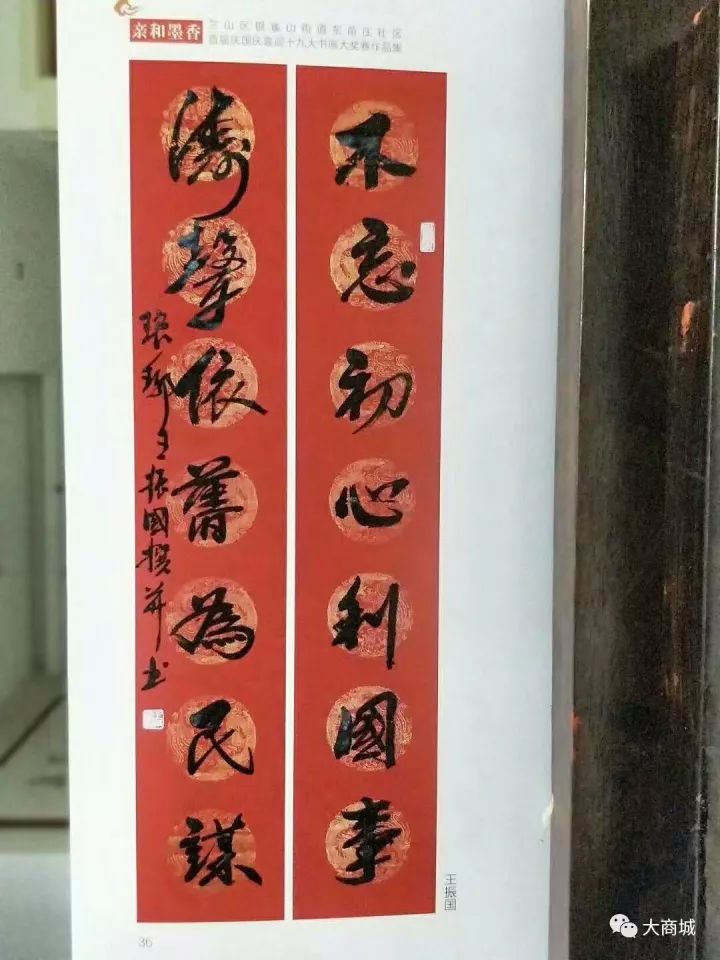 亲和墨香
兰山区银雀山街道东苗庄社区
首届庆国庆喜迎十九大书画大奖赛作品集
不忘初心利國事
濤聲依舊為民謀
琅琊王振國撰并书
王振国
36
大商城